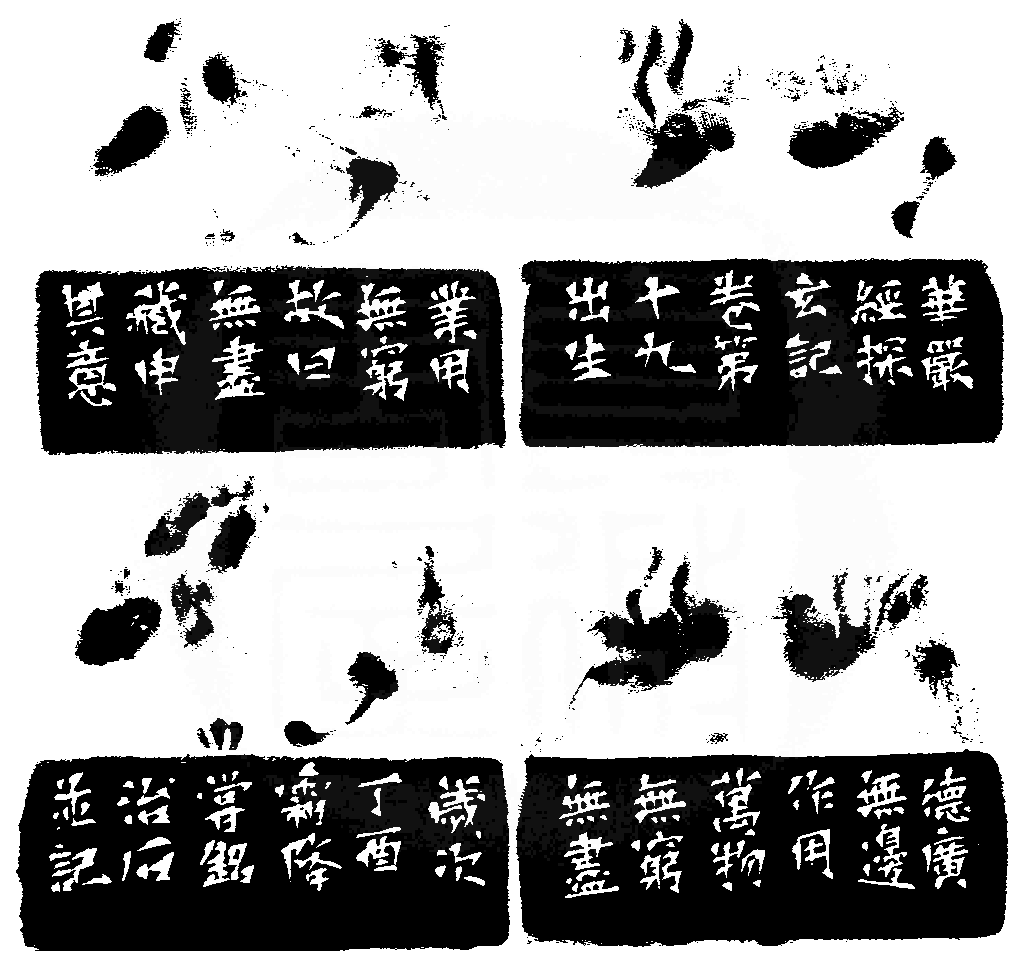 華嚴
經探
玄記
卷第
十九
出生
業用
無窮
故曰
無盡
藏申
其意
德廣
無邊
作用
萬物
無窮
無盡
歲次
丁酉
霜降
治石
並記